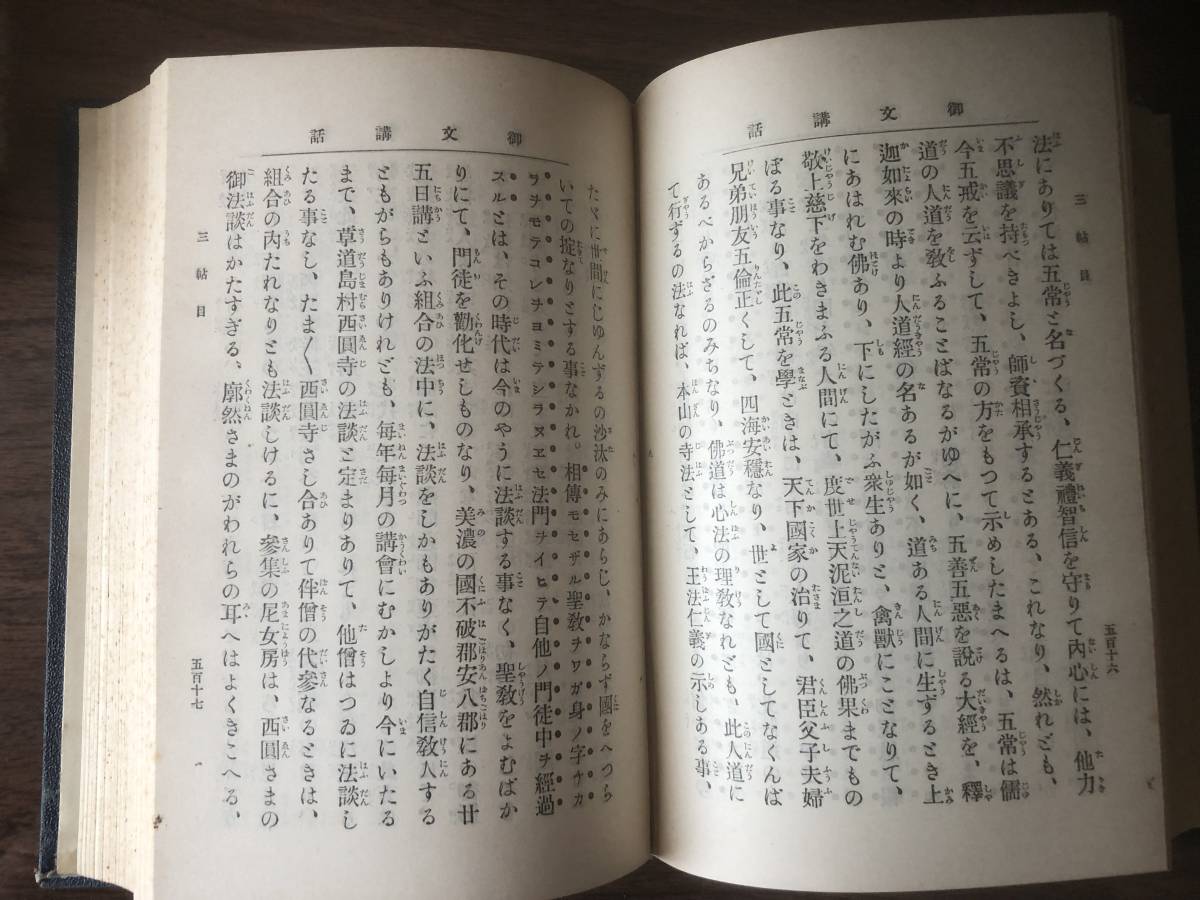 御文講話
三帖目
五百十六
法にありては五常と名づくる、仁義禮智信を守りて內心には、他力
不思議を持べきよし、師資相承するとある、これなり、然れども、
今五戒を云ずして、五常の方をもつて示めしたまへるは、五常は儒
道の人道を敎ふることばなるがゆへに、五善五惡を說る大經を、釋
迦如來の時より人道經の名あるが如く、道ある人間に生ずるとき上
にあはれむ佛あり、下にしたがふ衆生ありと、禽獸にことなりて、
敬上慈下をわきまふる人間にて、度世上天泥洹之道の佛果までもの
ぼる事なり、此五常を學ときは、天下國家の治りて、君臣父子夫婦
兄弟朋友五倫正くして、四海安穩なり、世として國としてなくんば
あるべからざるのみちなり、佛道は心法の理敎なれども、此人道に
て行ずるの法なれば、本山の寺法として、王法仁義の示しある事、
御文講話
三帖目
五百十七
たゞに世間にじゆんずるの沙汰のみにあらじ、かならず國をへつら
いての掟なりとする事なかれ。相傳モセザル聖敎ヲワガ身ノ字ヂカ
ヲヲモテコレヲヨミテシラヌヱセ法門ヲイヒテ自他ノ門徒中ヲ經過
スルとは、その時代は今のやうに法談する事なく、聖敎をよむばか
りにて、門徒を勸化せしものなり、美濃の國不破郡安八郡にある廿
五日講といふ組合の法中に、法談をしかもありがたく自信敎人する
ともがらもありけれども、每年每月の講會にむかしより今にいたる
まで、草道島村西圓寺の法談と定まりありて、他僧はつゐに法談し
たる事なし、たま〱西圓寺さし合ありて伴僧の代參なるときは、
組合の內たれなりとも法談しけるに、參集の尼女房は、西圓さまの
御法談はかたすぎる、廓然さまのがわれらの耳へはよくきこへる、